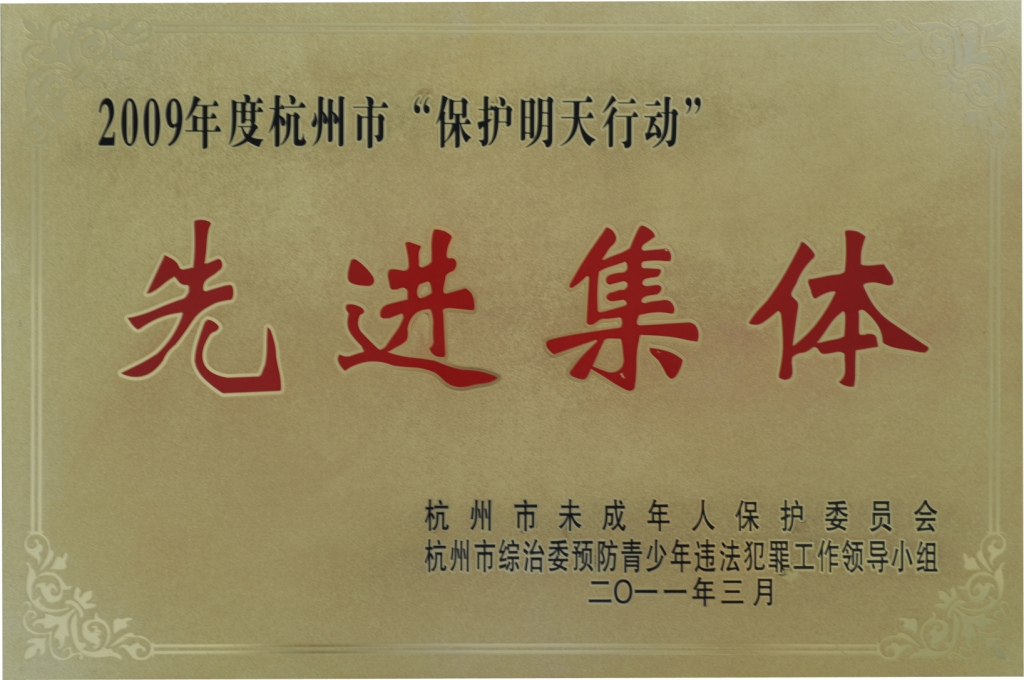 2009年度杭州市“保护明天行动”
先进集体
杭州市未成年人保护委员会
杭州市综治委预防青少年违法犯罪工作领导小组
二〇一一年三月